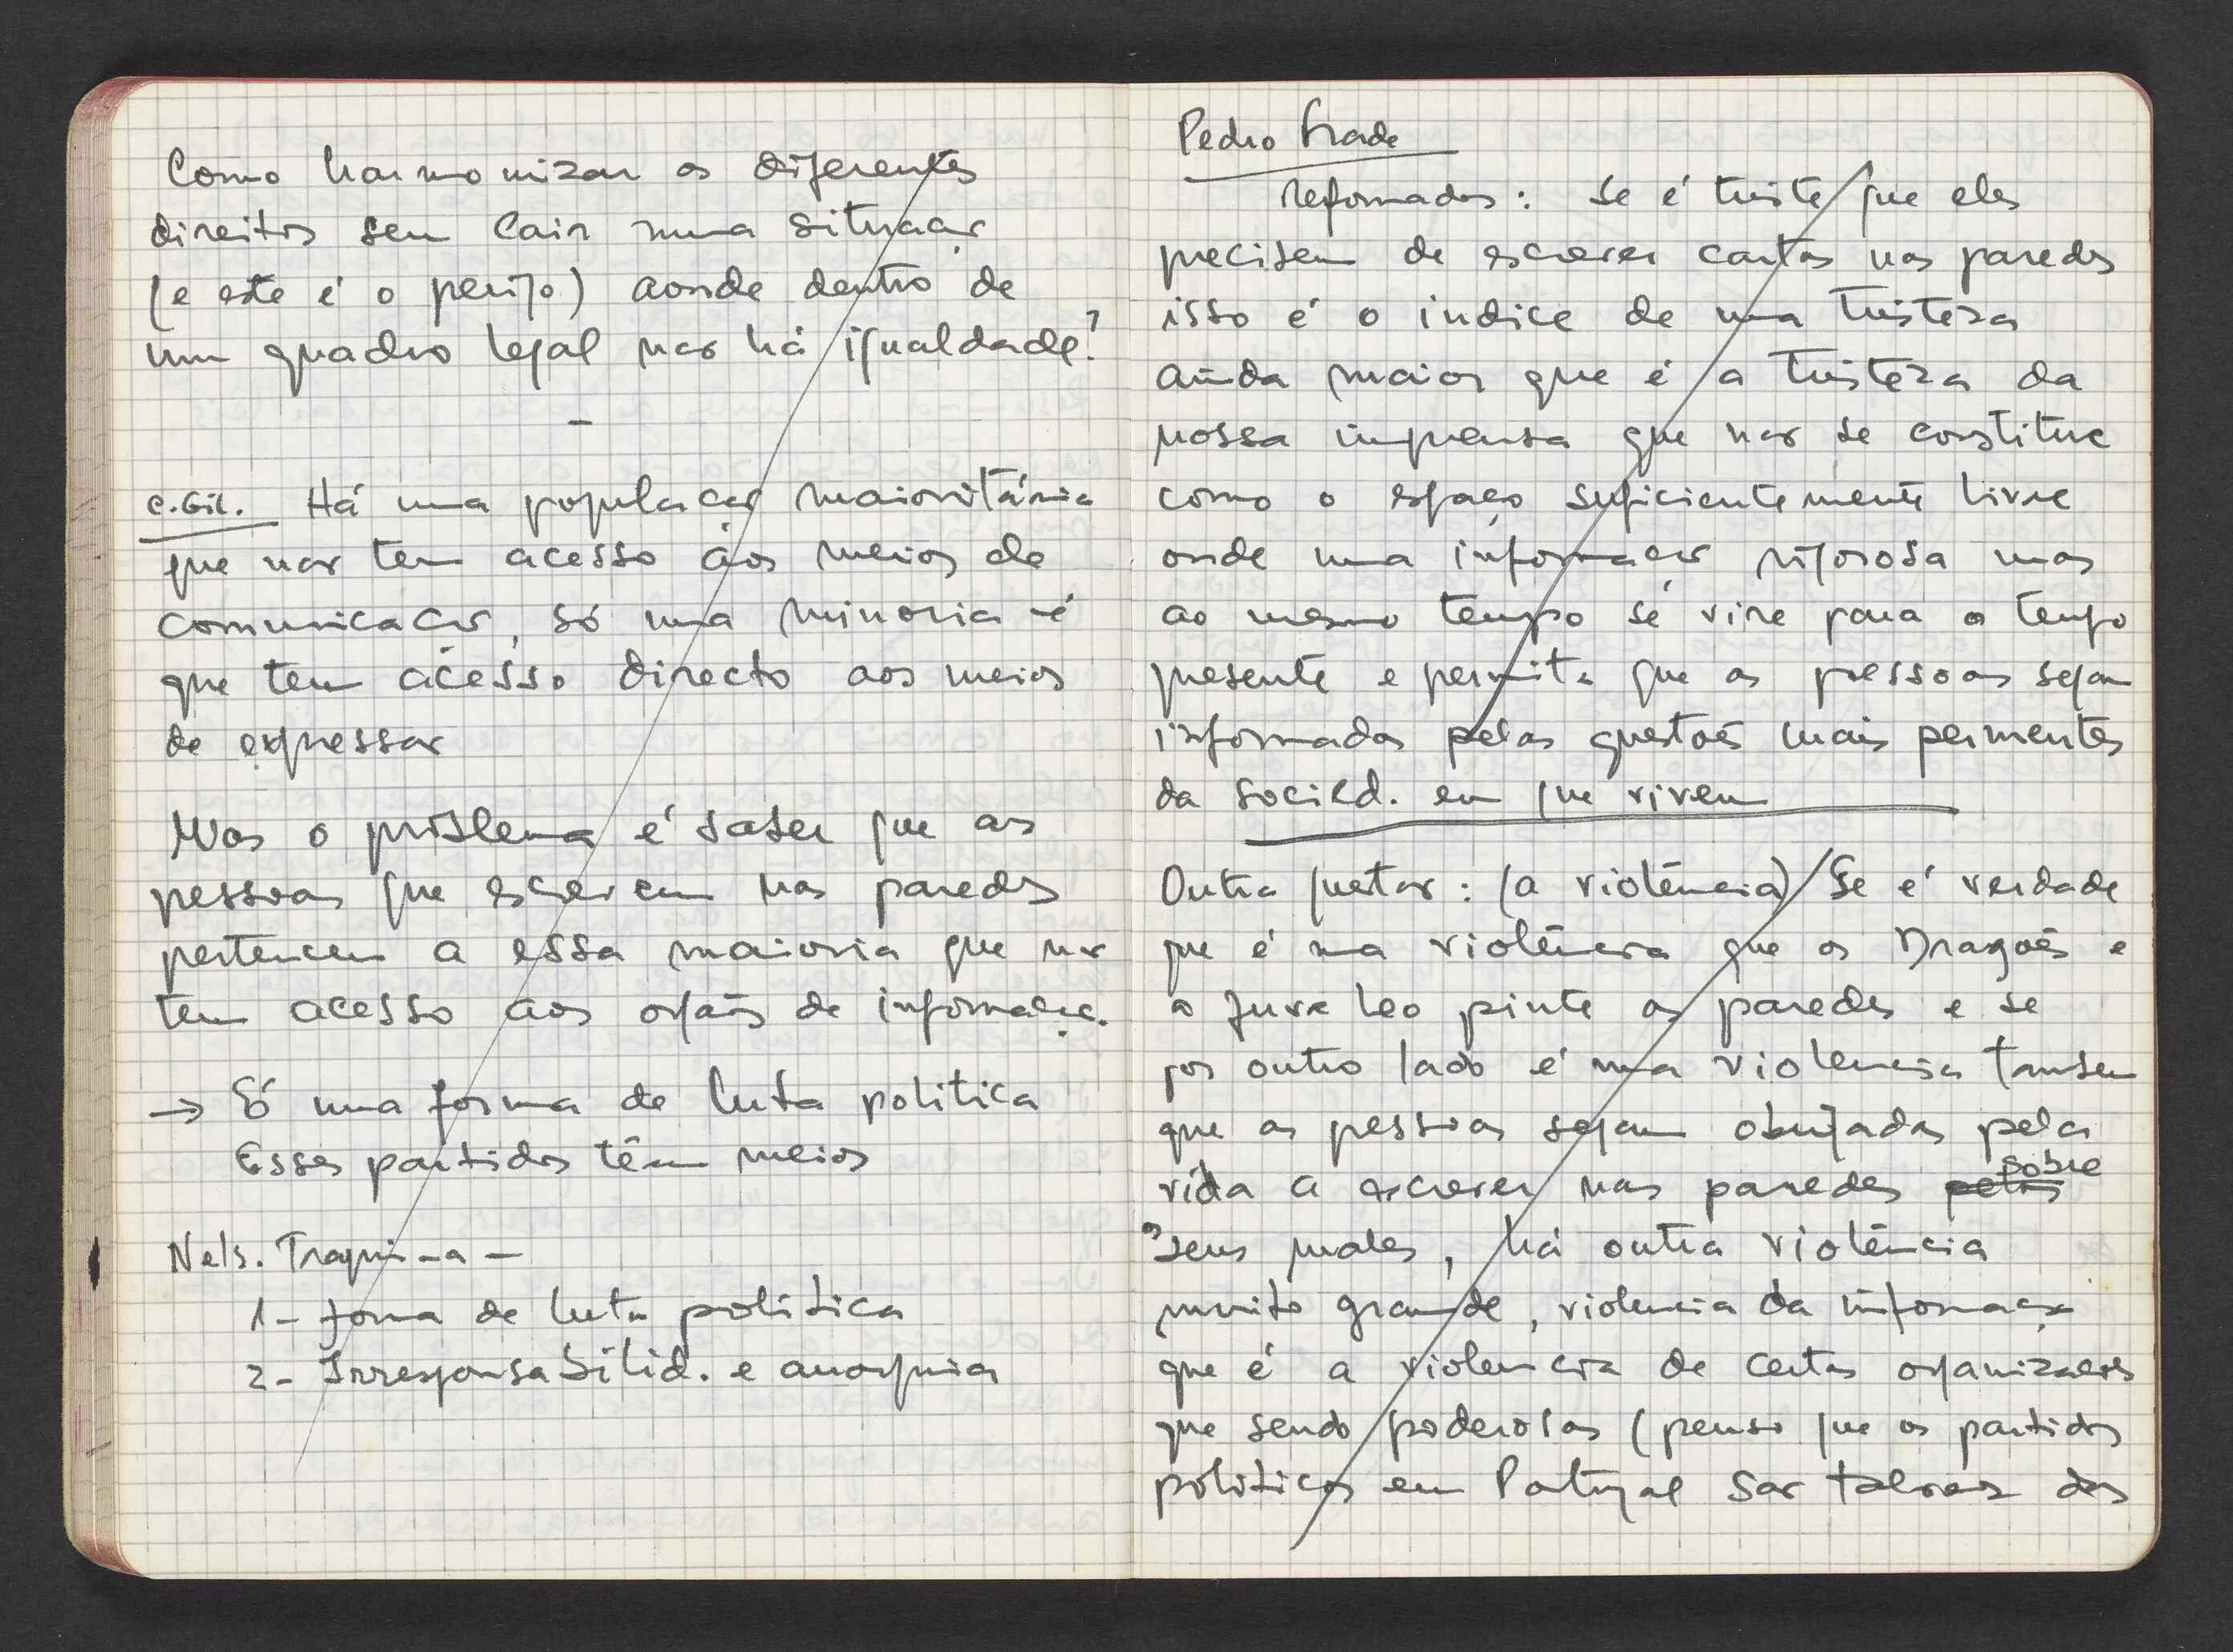 Como harmonizar os diferentes
direitos sem cair numa situação
(e este é o perigo) aonde dentro de
um quadro legal não há igualdade?
–
C. Gil. Há uma população maioritária
que não tem acesso aos meios de
comunicação, só uma minoria é
que tem acesso directo aos meios
de expressão
Mas o problema é saber que as
pessoas que escrevem nas paredes
pertencem a essa maioria que não
tem acesso aos orgãos de informaç.
→ Só uma forma de luta politica
Esses partidos têm meios
Nels. Traquina –
1 - forma de luta politica
2 - Irresponsabilid. e anarquia
Pedro Frade
Reformados: Se é triste que eles
precisem de escrever cartas nas paredes
isso é o indice de uma tristeza
ainda maior que é a tristeza da
nossa imprensa que não se constitue
como o espaço suficientemente livre
onde uma informação rigorosa mas
ao mesmo tempo se vire para o tempo
presente e permita que as pessoas sejam
informadas pelas questões mais permentes
da socied. em que vivem
Outra questão: (a violência) Se é verdade
que é uma violência que os Dragões e
a Juve Leo pinte as paredes e se
por outro lado é uma violencia tambem
que as pessoas sejam obrigadas pela
vida a escrever nas paredes pelos sobre
os seus males, há outra violência
muito grande, violencia da informação
que é a violencia de certas organizações
que sendo poderosas (penso que os partidos
politicos em Portugal são talvez das